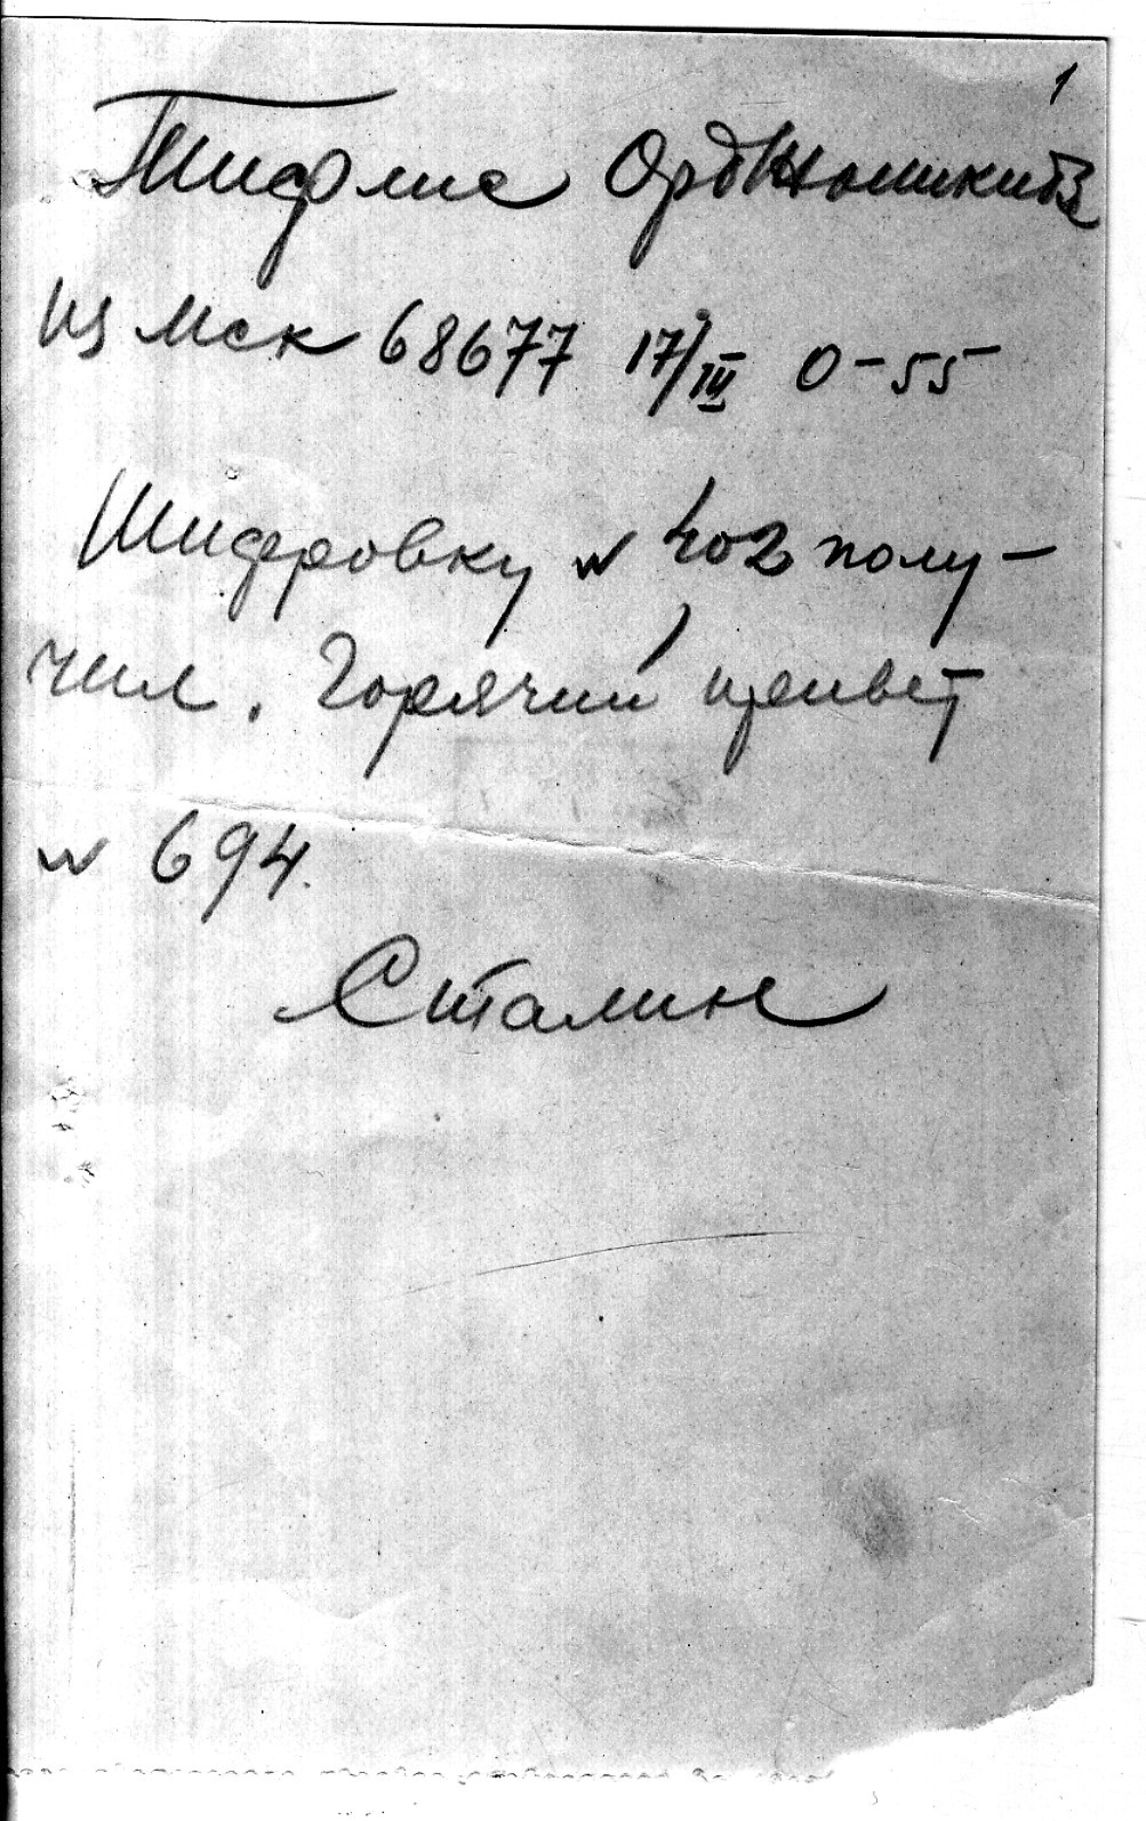 1
Тифлис Орджоникидзе
Из Мск 68677 17/III 0-55
Шифровку № 402 полу-
чил. Горячий привет
№ 694.
Сталин